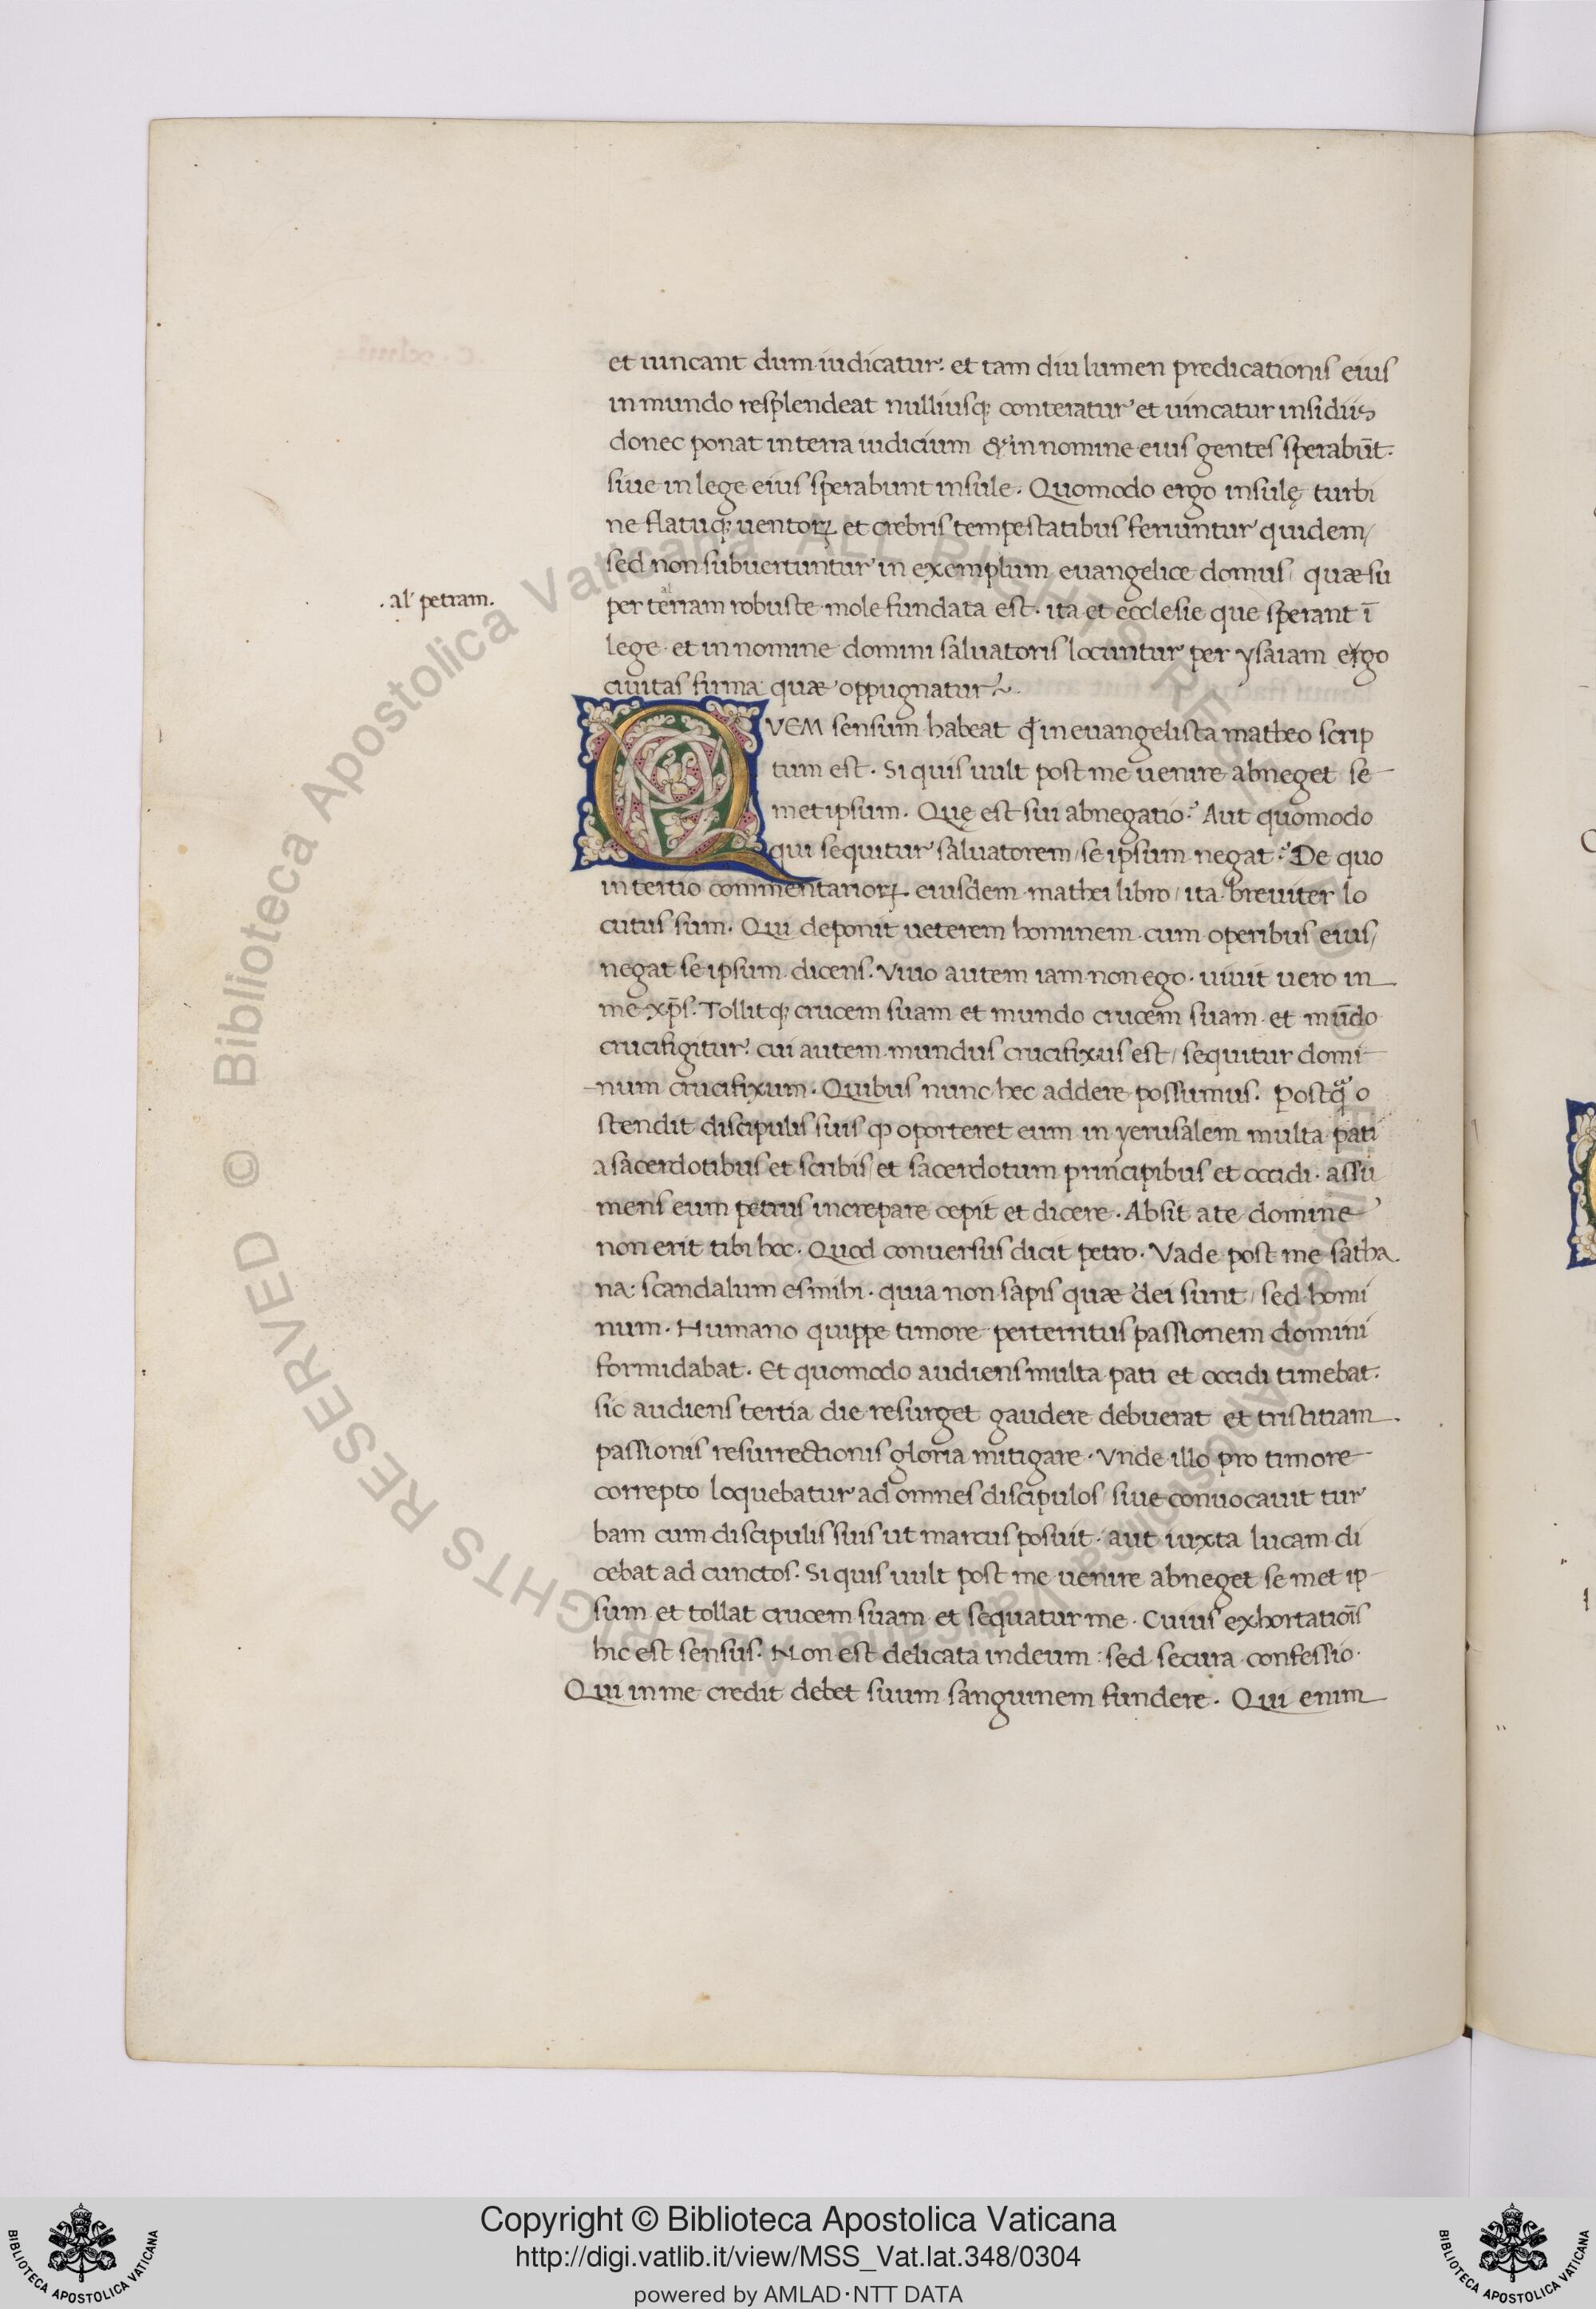 et uincant dum iudicatur. et tam diu lumen predicationis eius
in mundo resplendeat nulliusq; conteratur et uincatur insidiis
donec ponat in terra iudicium & in nomine eius gentes sperabūt.
siue in lege eius sperabunt insule. Quomodo ergo insulę turbi
ne flatuq; uentoꝝ et crebris tempestatibus feriuntur quidem/
sed non subuertuntur in exemplum euangelice domus/ quæ su
al
.al' petram.
per terram robuste mole fundata est. ita et ecclesie que sperant ī
lege et in nomine domini saluatoris locuntur per ysaiam ergo
ciuitas firma quæ oppugnatur.
QVEM sensum habeat qđ in euangelista matheo scrip
tum est. Si quis uult post me uenire abneget se
met ipsum. Quę est sui abnegatio? Aut quomodo
qui sequitur saluatorem/ se ipsum negat? De quo
in tertio commentarioꝝ eiusdem mathei libro/ ita breuiter lo
cutus sum. Qui deponit ueterem hominem cum operibus eius/
negat se ipsum dicens. Viuo autem iam non ego. uiuit uero in
me xp̄s. Tollitq; crucem suam et mundo crucem suam et mūdo
crucifigitur. cui autem mundus crucifixus est/ sequitur domi
num crucifixum. Quibus nunc hec addere possumus. Postq̃ o
stendit discipulis suis ꝙ oporteret eum in yerusalem multa pati
a sacerdotibus et scribis/ et sacerdotum principibus et occidi. assu
mens eum petrus increpare cepit et dicere. Absit a te domine
non erit tibi hoc. Quod conuersus dicit petro. Vade post me satha
na: scandalum es mihi. quia non sapis quæ dei sunt/ sed homi
num. Humano quippe timore perterritus passionem domini
formidabat. Et quomodo audiens multa pati et occidi timebat.
sic audiens tertia die resurget gaudere debuerat et tristitiam
passionis resurrectionis gloria mitigare. Vnde illo pro timore
correpto loquebatur ad omnes discipulos/ siue conuocauit tur
bam cum discipulis suis ut marcus posuit. aut iuxta lucam di
cebat ad cunctos. Si quis uult post me uenire abneget se met ip
sum et tollat crucem suam et sequatur me. Cuius exhortatiōis
hic est sensus. Non est delicata in deum: sed secura confessio.
Qui in me credit debet suum sanguinem fundere. Qui enim
© Biblioteca Apostolica Vaticana ALL RIGHTS RESERVED © Biblioteca Apostolica Vaticana ALL RIGHTS RESERVED
Copyright © Biblioteca Apostolica Vaticana
http://digi.vatlib.it/view/MSS_Vat.lat.348/0304
powered by AMLAD·NTT DATA
BIBLIOTECA APOSTOLICA VATICANA
BIBLIOTECA APOSTOLICA VATICANA